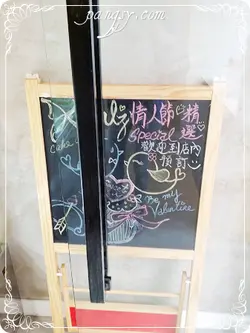 www.pangsy.com
情人節 精選
Special
Cake
歡迎到店內
預訂
Be my
Valentine